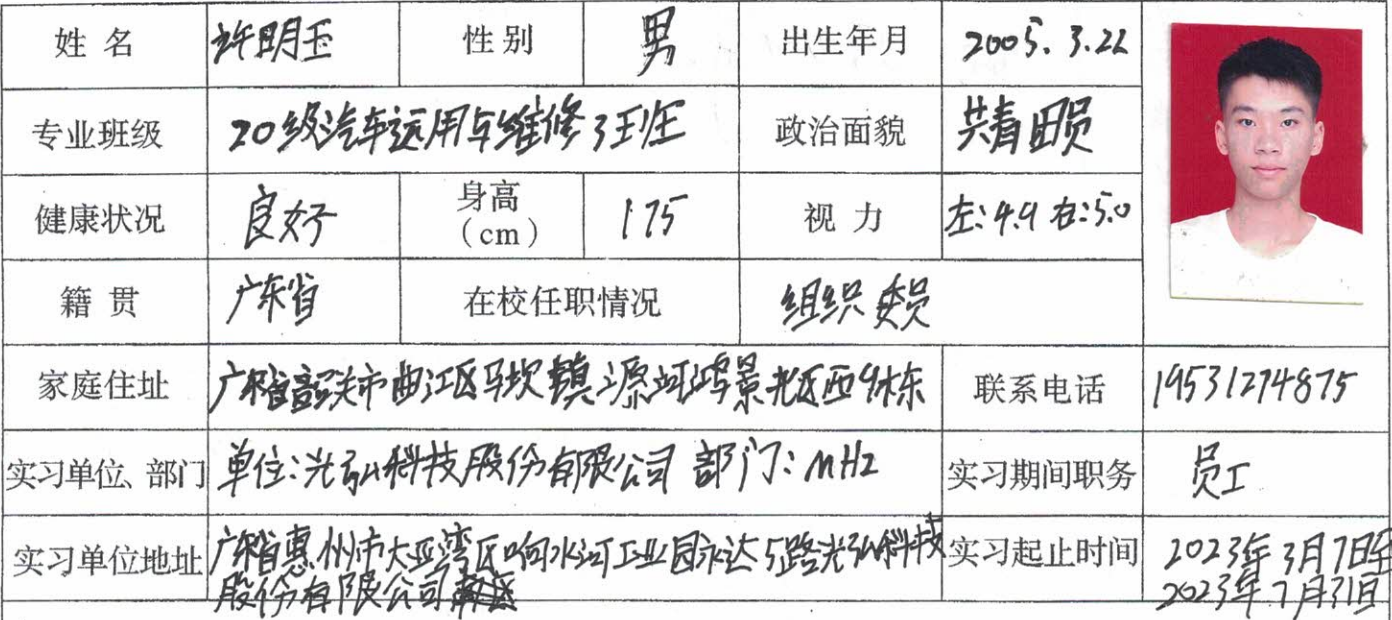 姓 名 许明玉 性别 男 出生年月 2005.3.22
专业班级 20级汽车运用与维修3班 政治面貌 共青团员
健康状况 良好 身高(cm) 175 视 力 左:4.9 右:5.0
籍 贯 广东省 在校任职情况 组织委员
家庭住址 广东省韶关市曲江区马坝镇 联系电话 19531274875
实习单位、部门 单位:光弘科技股份有限公司 部门:MH2 实习期间职务 员工
实习单位地址 广东省惠州市大亚湾区响水河工业园永达5路光弘科技 实习起止时间 2023年3月7日至
股份有限公司 2023年7月31日